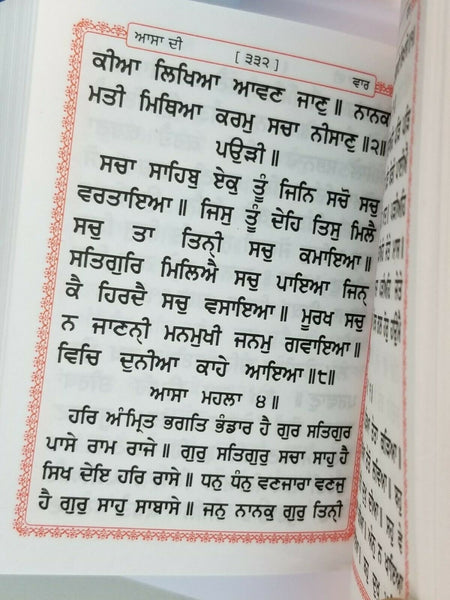 ਆਸਾ ਦੀ [ ੩੩੨ ] ਵਾਰ
ਕੀਆ ਲਿਖਿਆ ਆਵਣ ਜਾਣੁ॥ ਨਾਨਕ
ਮਤੀ ਮਿਥਿਆ ਕਰਮੁ ਸਚਾ ਨੀਸਾਣੁ॥੨॥
ਪਉੜੀ॥
ਸਚਾ ਸਾਹਿਬੁ ਏਕੁ ਤੂੰ ਜਿਨਿ ਸਚੋ ਸਚੁ
ਵਰਤਾਇਆ॥ ਜਿਸੁ ਤੂੰ ਦੇਹਿ ਤਿਸੁ ਮਿਲੈ
ਸਚੁ ਤਾ ਤਿਨੀ੍ ਸਚੁ ਕਮਾਇਆ॥
ਸਤਿਗੁਰਿ ਮਿਲਿਐ ਸਚੁ ਪਾਇਆ ਜਿਨ੍
ਕੈ ਹਿਰਦੈ ਸਚੁ ਵਸਾਇਆ॥ ਮੂਰਖ ਸਚੁ
ਨ ਜਾਣਨੀ੍ ਮਨਮੁਖੀ ਜਨਮੁ ਗਵਾਇਆ॥
ਵਿਚਿ ਦੁਨੀਆ ਕਾਹੇ ਆਇਆ॥੮॥
ਆਸਾ ਮਹਲਾ ੪॥
ਹਰਿ ਅੰਮ੍ਰਿਤ ਭਗਤਿ ਭੰਡਾਰ ਹੈ ਗੁਰ ਸਤਿਗੁਰ
ਪਾਸੇ ਰਾਮ ਰਾਜੇ॥ ਗੁਰੁ ਸਤਿਗੁਰੁ ਸਚਾ ਸਾਹੁ ਹੈ
ਸਿਖ ਦੇਇ ਹਰਿ ਰਾਸੇ॥ ਧਨੁ ਧੰਨੁ ਵਣਜਾਰਾ ਵਣਜੁ
ਹੈ ਗੁਰੁ ਸਾਹੁ ਸਾਬਾਸੇ॥ ਜਨੁ ਨਾਨਕੁ ਗੁਰੁ ਤਿਨੀ੍